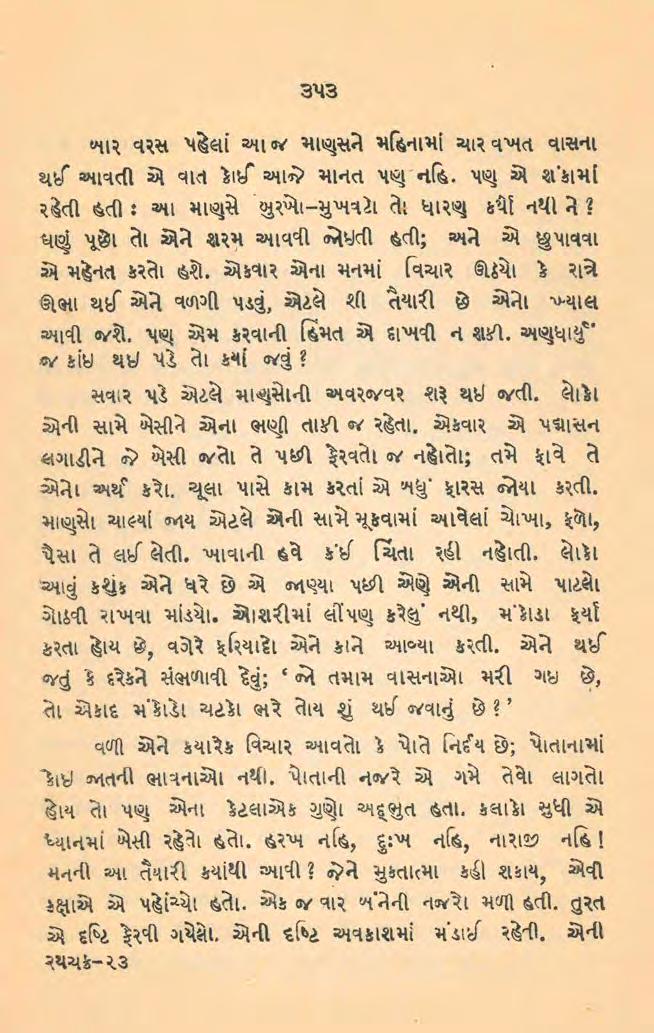 ૩૫૩
બાર વરસ પહેલાં આ જ માણસને મહિનામાં ચાર વખત વાસના
થઈ આવતી એ વાત કોઈ આજે માનત પણ નહિ. પણ એ શંકામાં
રહેતી હતી : આ માણસે બુરખો–મુખવટો તો ધારણ કર્યો નથી ને ?
ઘણું પૂછો તો એને શરમ આવવી જોઇતી હતી; અને એ છુપાવવા
એ મહેનત કરતો હશે. એકવાર એના મનમાં વિચાર ઊઠયો કે રાત્રે
ઊભા થઈ એને વળગી પડવું, એટલે શી તૈયારી છે એનો ખ્યાલ
આવી જશે. પણ એમ કરવાની હિંમત એ દાખવી ન શકી. અણધાર્યું
જ કાંઇ થઇ પડે તો કયાં જવું ?
સવાર પડે એટલે માણસોની અવરજવર શરૂ થઇ જતી. લોકો
એની સામે બેસીને એના ભણી તાકી જ રહેતા. એકવાર એ પદ્માસન
લગાડીને જે બેસી જતો તે પછી ફેરવતો જ નહોતો; તમે ફાવે તે
એનો અર્થ કરો. ચૂલા પાસે કામ કરતાં એ બધું ફારસ જોયા કરતી.
માણસો ચાલ્યાં જાય એટલે એની સામે મૂકવામાં આવેલાં ચોખા, ફળો,
પૈસા તે લઈ લેતી. ખાવાની હવે કંઈ ચિંતા રહી નહોતી. લોકો
આવું કશુંક એને ધરે છે એ જાણ્યા પછી એણે એની સામે પાટલો
ગોઠવી રાખવા માંડયો. ઓશરીમાં લીંપણ કરેલું નથી, મંકોડા ફર્યા
કરતા હોય છે, વગેરે ફરિયાદો એને કાને આવ્યા કરતી. એને થઈ
જતું કે દરેકને સંભળાવી દેવું; ‘ જો તમામ વાસનાઓ મરી ગઇ છે,
તો એકાદ મંકોડો ચટકો ભરે તોય શું થઈ જવાનું છે ?’
વળી એને કયારેક વિચાર આવતો કે પોતે નિર્દય છે; પોતાનામાં
કોઇ જાતની ભાવનાઓ નથી. પોતાની નજરે એ ગમે તેવો લાગતો
હોય તો પણ એના કેટલાએક ગુણો અદ્દભુત હતા. કલાકો સુધી એ
ધ્યાનમાં બેસી રહેતો હતો. હરખ નહિ, દુઃખ નહિ, નારાજી નહિ !
મનની આ તૈયારી કયાંથી આવી ? જેને મુકતાત્મા કહી શકાય, એવી
કક્ષાએ એ પહોંચ્યો હતો. એક જ વાર બંનેની નજરો મળી હતી. તુરત
એ દષ્ટિ ફેરવી ગયેલો. એની દષ્ટિ અવકાશમાં મંડાઈ રહેતી. એની
રથચક્ર–૨૩